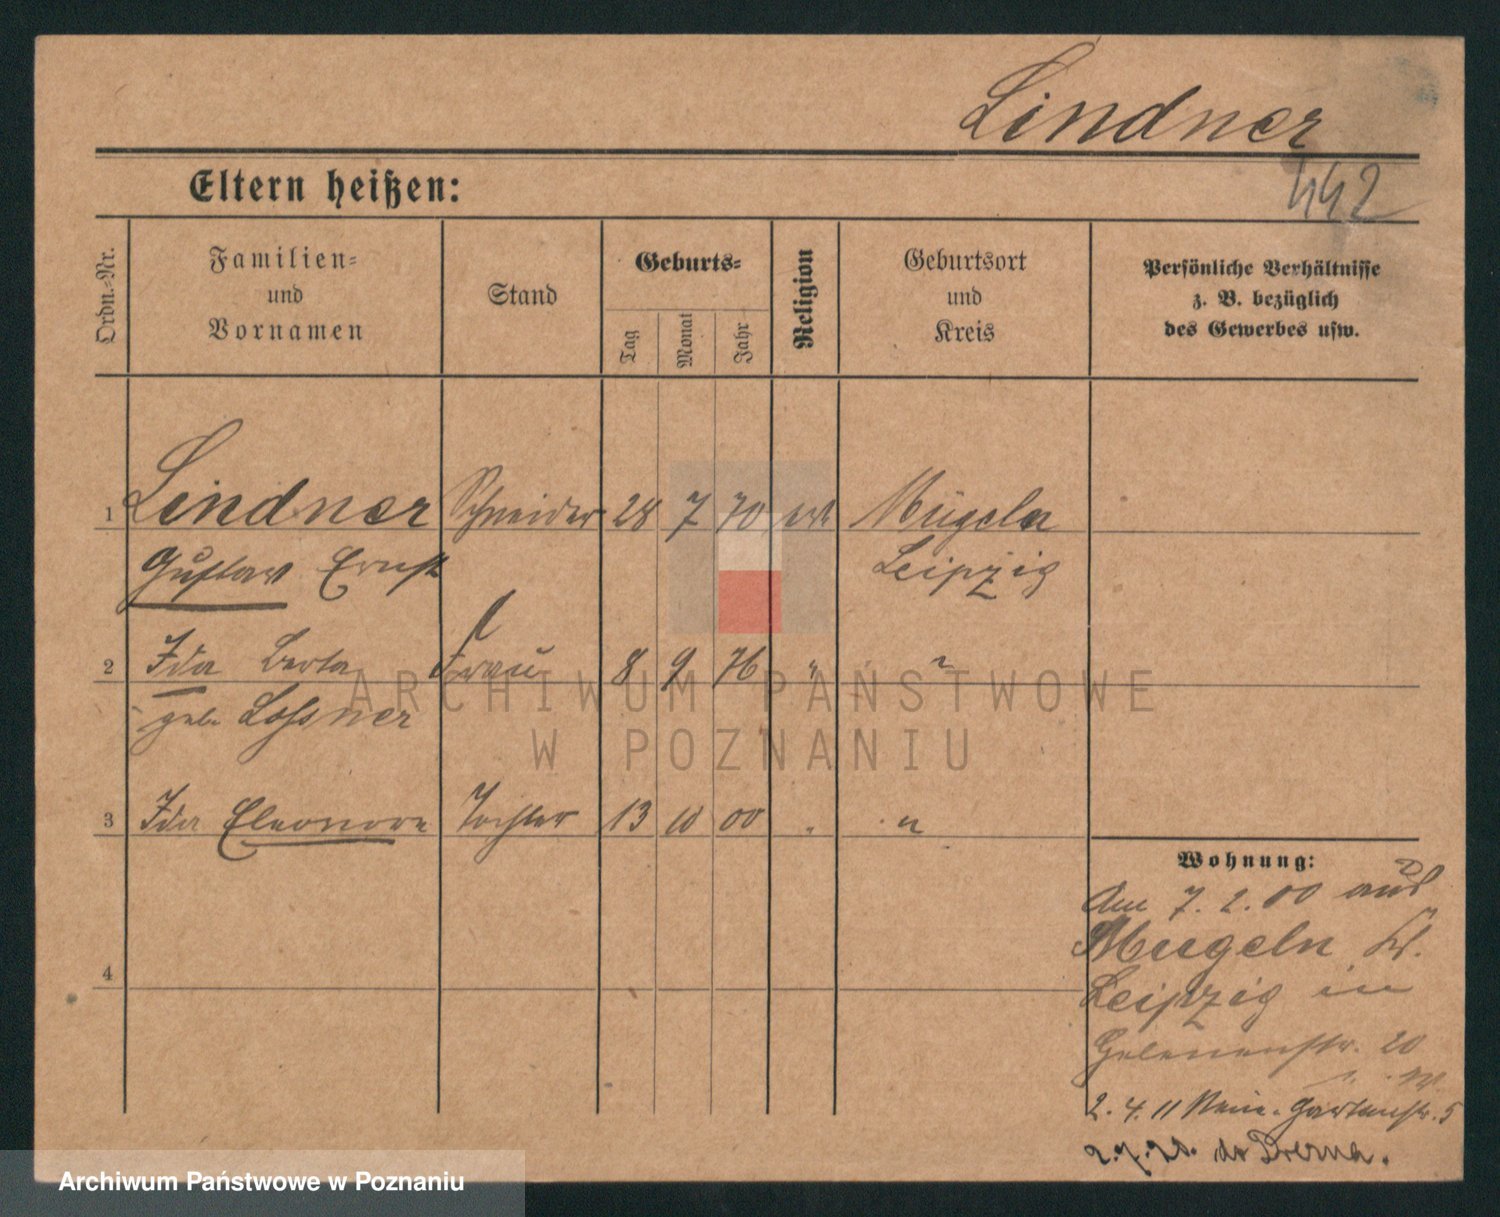 Lindner
442
Eltern heißen:
Ordn.-Nr.
Familien-
und
Vornamen
Stand
Geburts-
Tag
Monat
Jahr
Religion
Geburtsort
und
Kreis
Persönliche Verhältnisse
z. B. bezüglich
des Gewerbes usw.
1 Lindner Schneider 28 7 70 Mügeln
Gustav Ernst Leipzig
2 Ida Berta Frau 8 9 76 "
geb. Lossner
3 Ida Eleonore Tochter 13 10 00 " "
4
Wohnung:
Am 7. 2. 00 aus
Muegeln Kr.
Leipzig in
20
2. 4. 11 Gartenstr. 5
ARCHIWUM PAŃSTWOWE
W POZNANIU
Archiwum Państwowe w Poznaniu